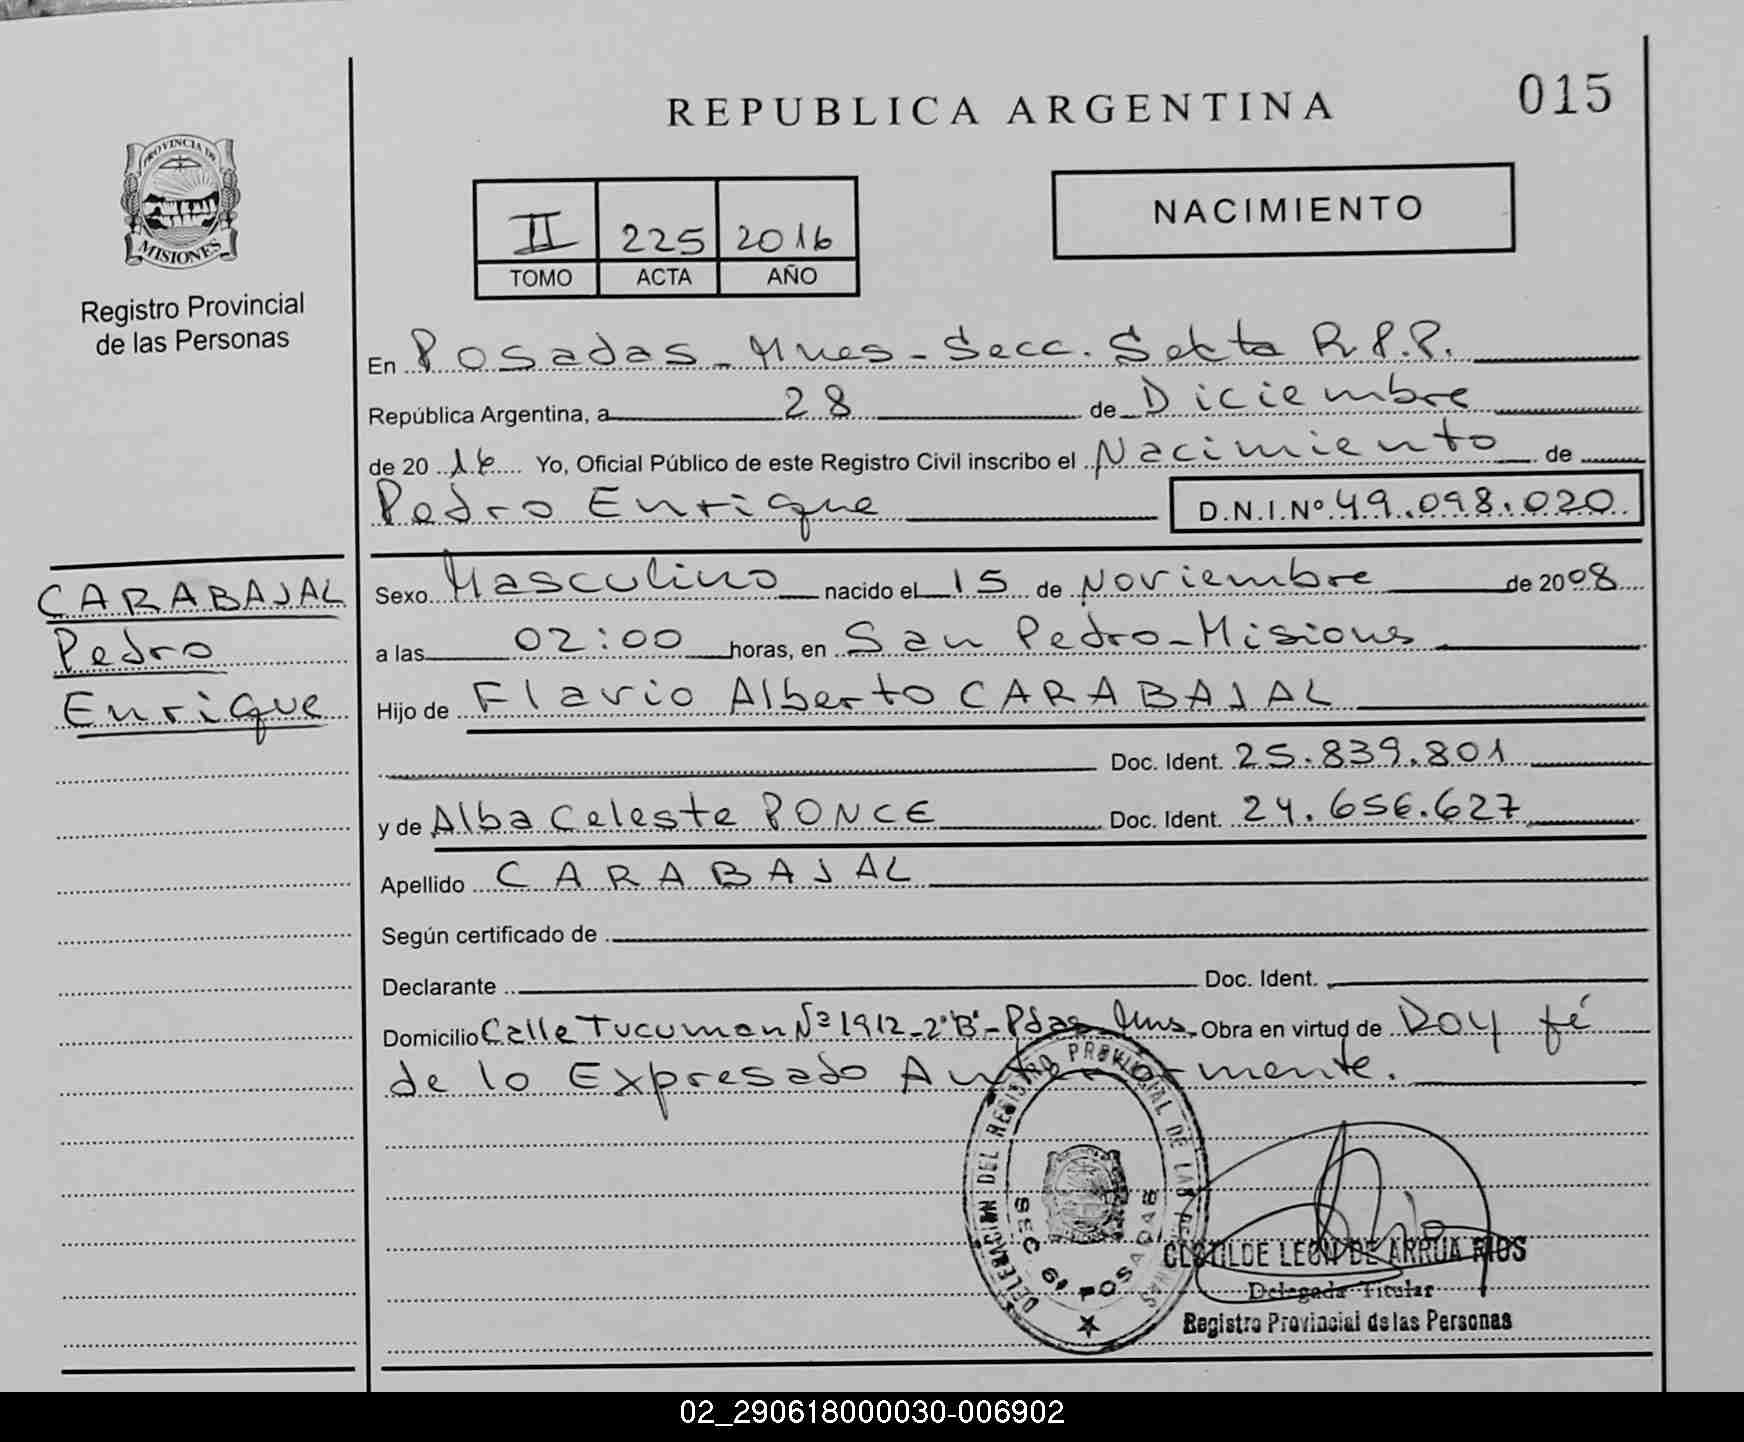 REPUBLICA ARGENTINA
015
PROVINCIA DE
MISIONES
Registro Provincial
de las Personas
II 225 2016
TOMO ACTA AÑO
NACIMIENTO
En Posadas - Mnes - Secc. Sexta R.P.P.
República Argentina, a 28 de Diciembre
de 20 16 Yo, Oficial Público de este Registro Civil inscribo el Nacimiento de
Pedro Enrique D.N.I.Nº 49.098.020
CARABAJAL
Pedro
Enrique
Sexo Masculino nacido el 15 de Noviembre de 2008
a las 02:00 horas, en San Pedro - Misiones
Hijo de Flavio Alberto CARABAJAL
Doc. Ident. 25.839.801
y de Alba Celeste PONCE Doc. Ident. 24.656.627
Apellido CARABAJAL
Según certificado de
Declarante Doc. Ident.
Domicilio Calle Tucuman Nº 1912 - 2º "B" - Pdas Mns. Obra en virtud de Doy fé
de lo Expresado Anteriormente.
DELEGACION DEL REGISTRO PROVINCIAL DE LAS
SEC 6ª POSADAS
CLOTILDE LEON DE ARRUA RIOS
Delegada Titular
Registro Provincial de las Personas
02_290618000030-006902